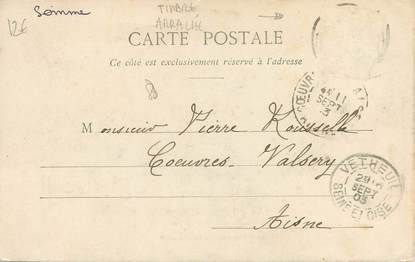 Somme
TIMBRE
ARRACHÉ
12€
CARTE POSTALE
Ce côté est exclusivement réservé à l'adresse
11
SEPT
03
Monsieur Pierre Rousselle
Coeuvres-Valsery
Aisne
VETHEUIL
29
SEPT
03
SEINE ET OISE